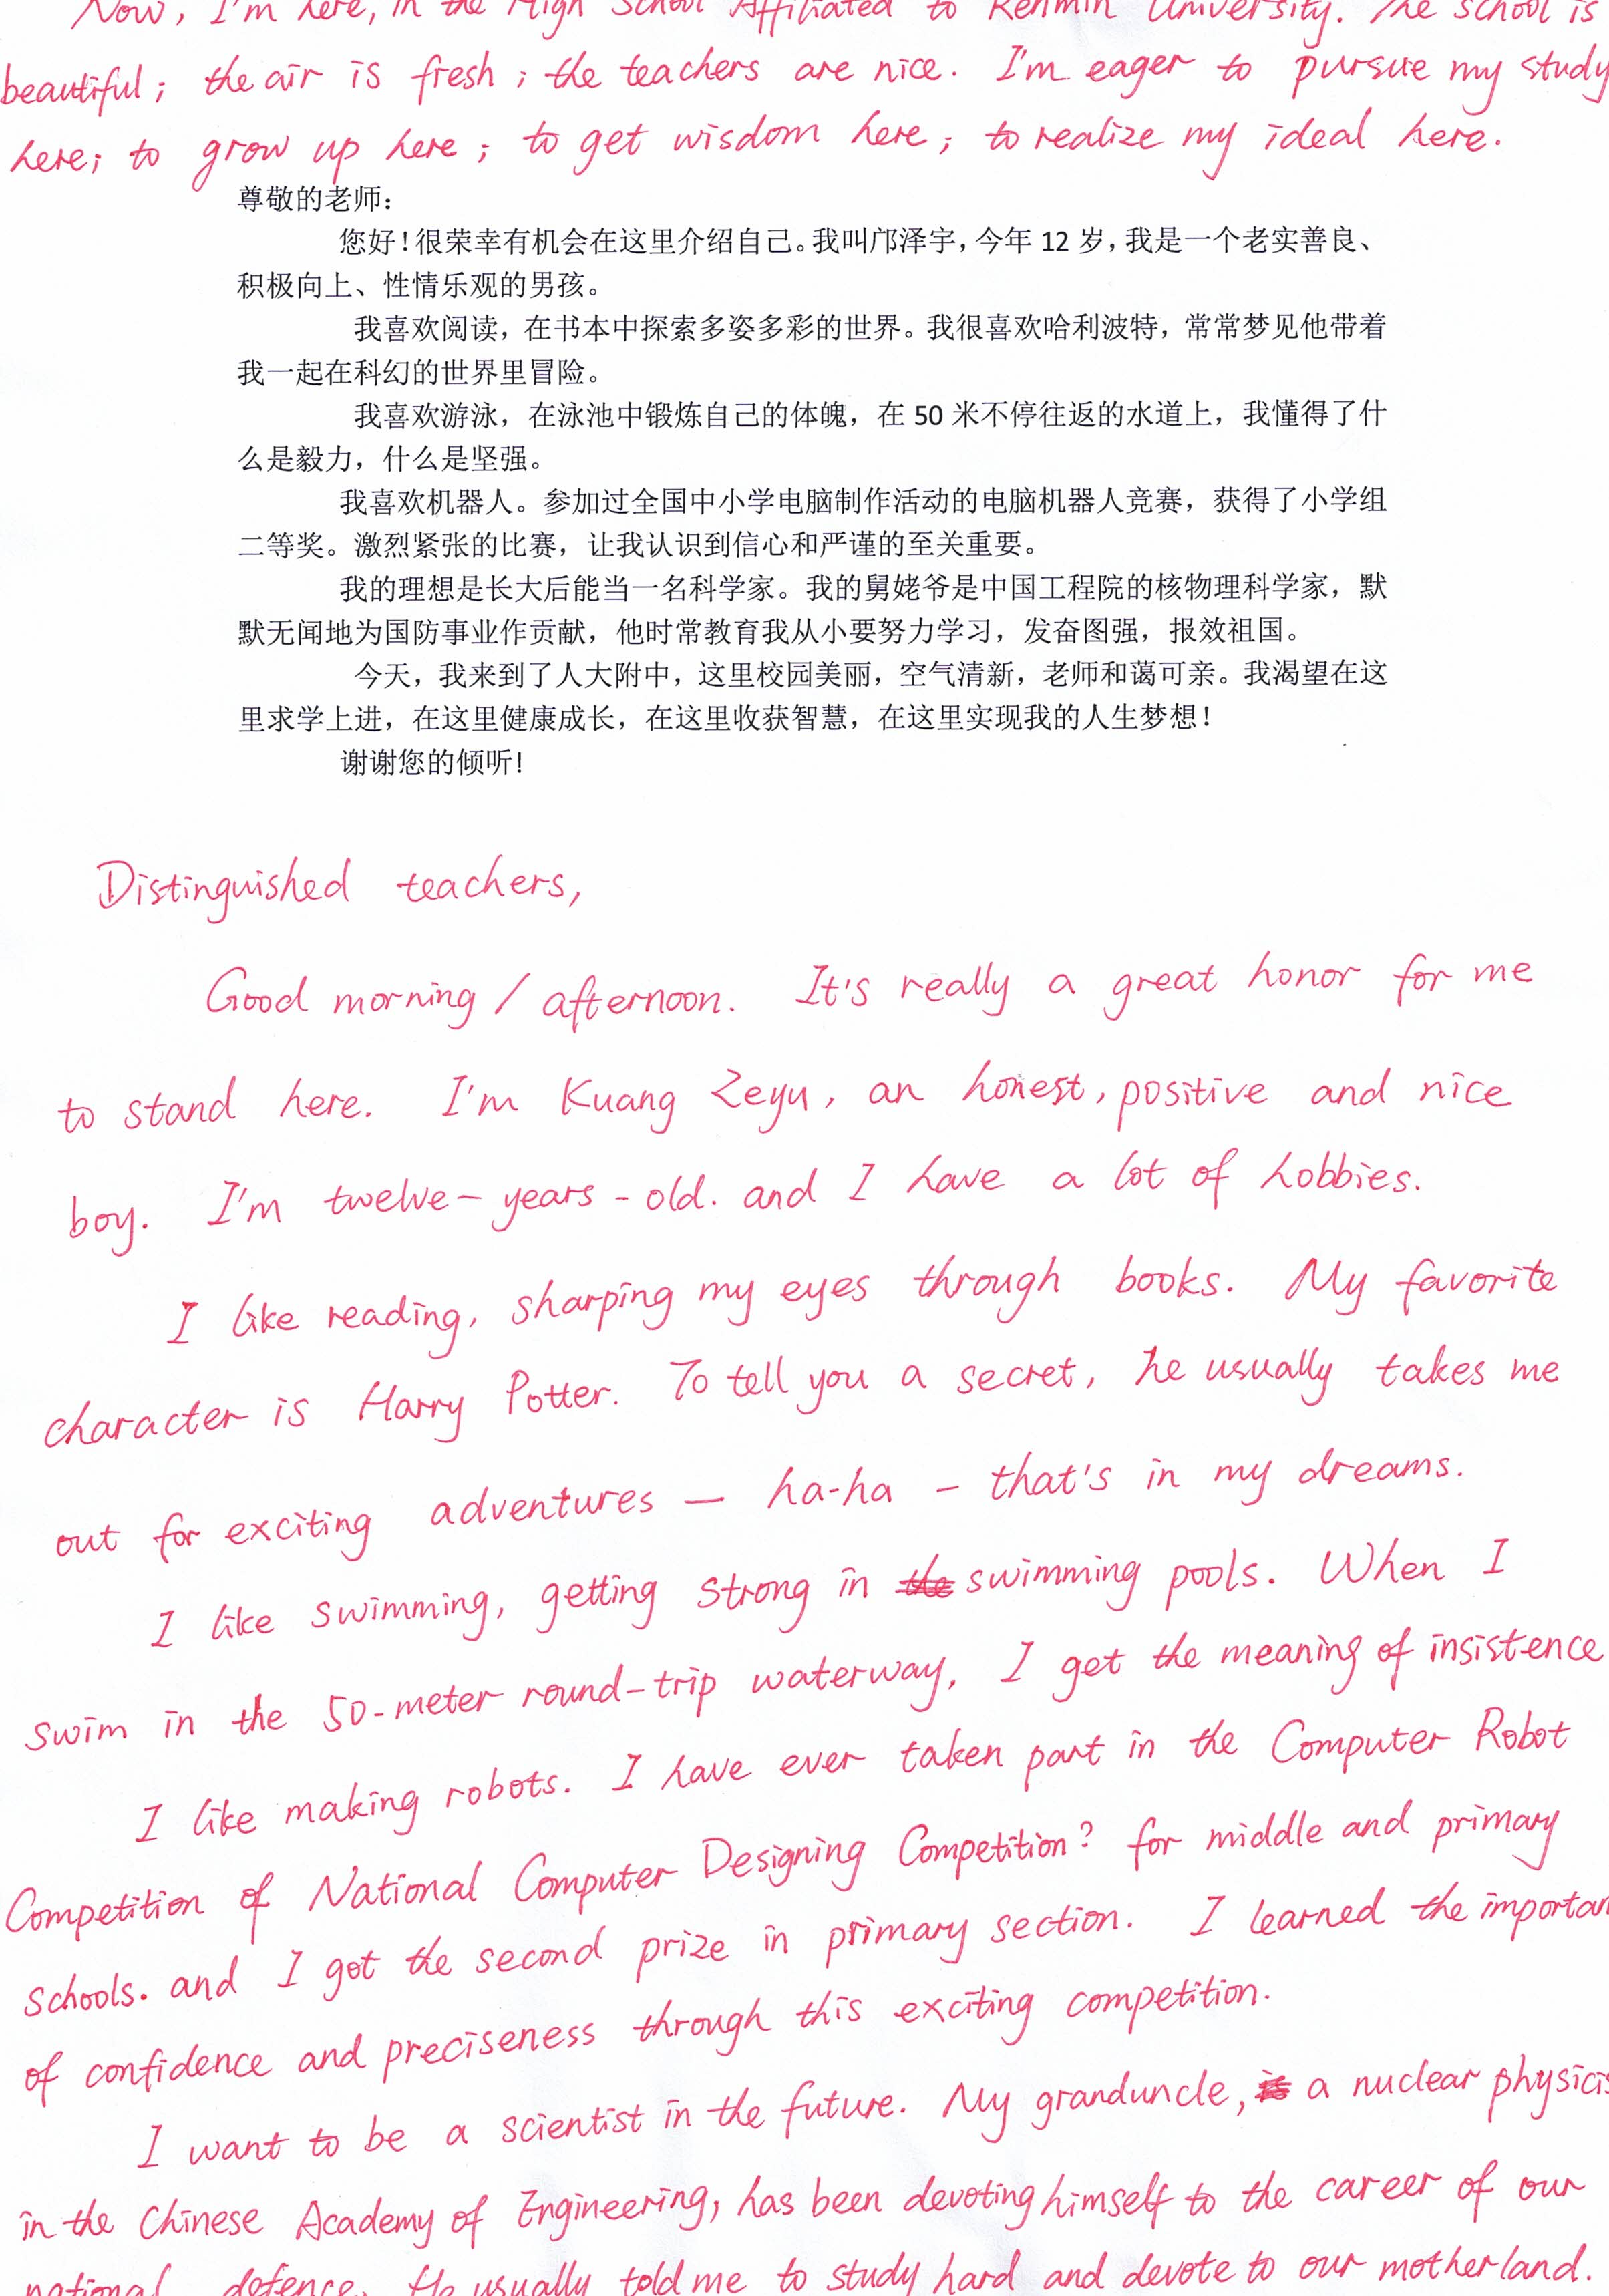 Now, I'm here, in the High School Affiliated to Renmin University. The school is
beautiful; the air is fresh; the teachers are nice. I'm eager to pursue my study
here; to grow up here; to get wisdom here; to realize my ideal here.
尊敬的老师：
您好！很荣幸有机会在这里介绍自己。我叫邝泽宇，今年 12 岁，我是一个老实善良、
积极向上、性情乐观的男孩。
我喜欢阅读，在书本中探索多姿多彩的世界。我很喜欢哈利波特，常常梦见他带着
我一起在科幻的世界里冒险。
我喜欢游泳，在泳池中锻炼自己的体魄，在 50 米不停往返的水道上，我懂得了什
么是毅力，什么是坚强。
我喜欢机器人。参加过全国中小学电脑制作活动的电脑机器人竞赛，获得了小学组
二等奖。激烈紧张的比赛，让我认识到信心和严谨的至关重要。
我的理想是长大后能当一名科学家。我的舅姥爷是中国工程院的核物理科学家，默
默无闻地为国防事业作贡献，他时常教育我从小要努力学习，发奋图强，报效祖国。
今天，我来到了人大附中，这里校园美丽，空气清新，老师和蔼可亲。我渴望在这
里求学上进，在这里健康成长，在这里收获智慧，在这里实现我的人生梦想！
谢谢您的倾听！
Distinguished teachers,
Good morning / afternoon. It's really a great honor for me
to stand here. I'm Kuang Zeyu, an honest, positive and nice
boy. I'm twelve-years-old. and I have a lot of hobbies.
I like reading, sharping my eyes through books. My favorite
character is Harry Potter. To tell you a secret, he usually takes me
out for exciting adventures — ha-ha — that's in my dreams.
I like swimming, getting strong in the swimming pools. When I
swim in the 50-meter round-trip waterway, I get the meaning of insistence
I like making robots. I have ever taken part in the Computer Robot
Competition of National Computer Designing Competition? for middle and primary
schools. and I got the second prize in primary section. I learned the importan
of confidence and preciseness through this exciting competition.
I want to be a scientist in the future. My granduncle, is a nuclear physicis
in the Chinese Academy of Engineering, has been devoting himself to the career of our
national defence. He usually told me to study hard and devote to our motherland.